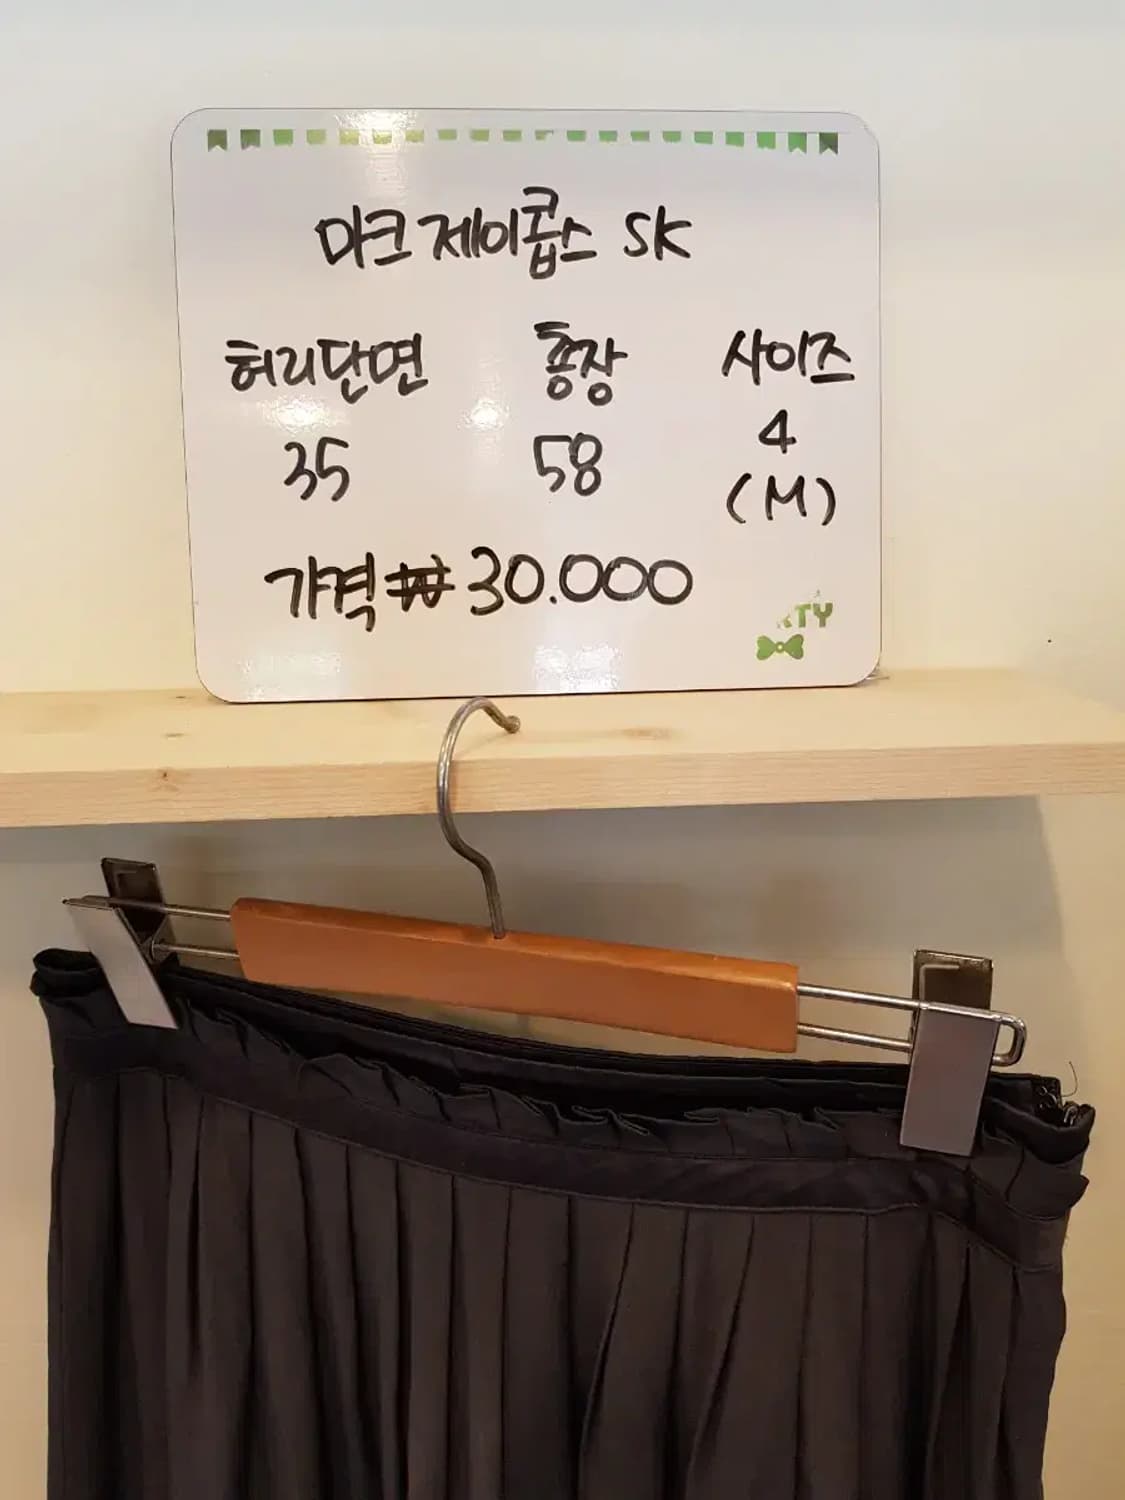 마크 제이콥스 SK
허리단면 총장 사이즈
35 58 4
(M)
가격 ₩30.000
RTY